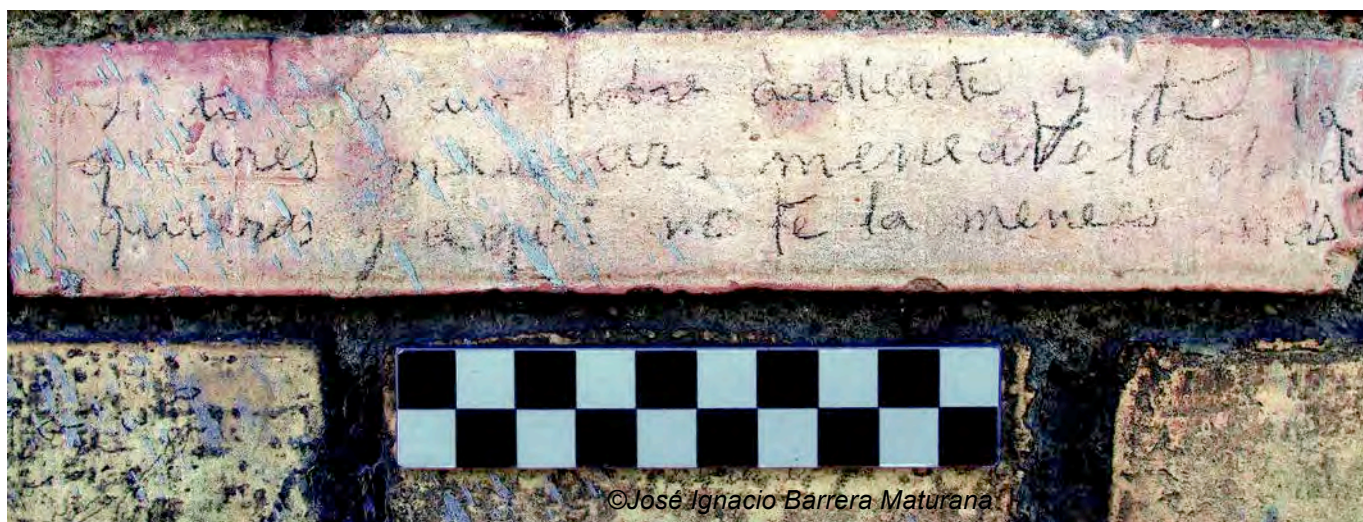 Si tu eres un hobre ardiente y te la
quieres menear, meneatela donde
quieras y aqui no te la menees más
©José Ignacio Barrera Maturana